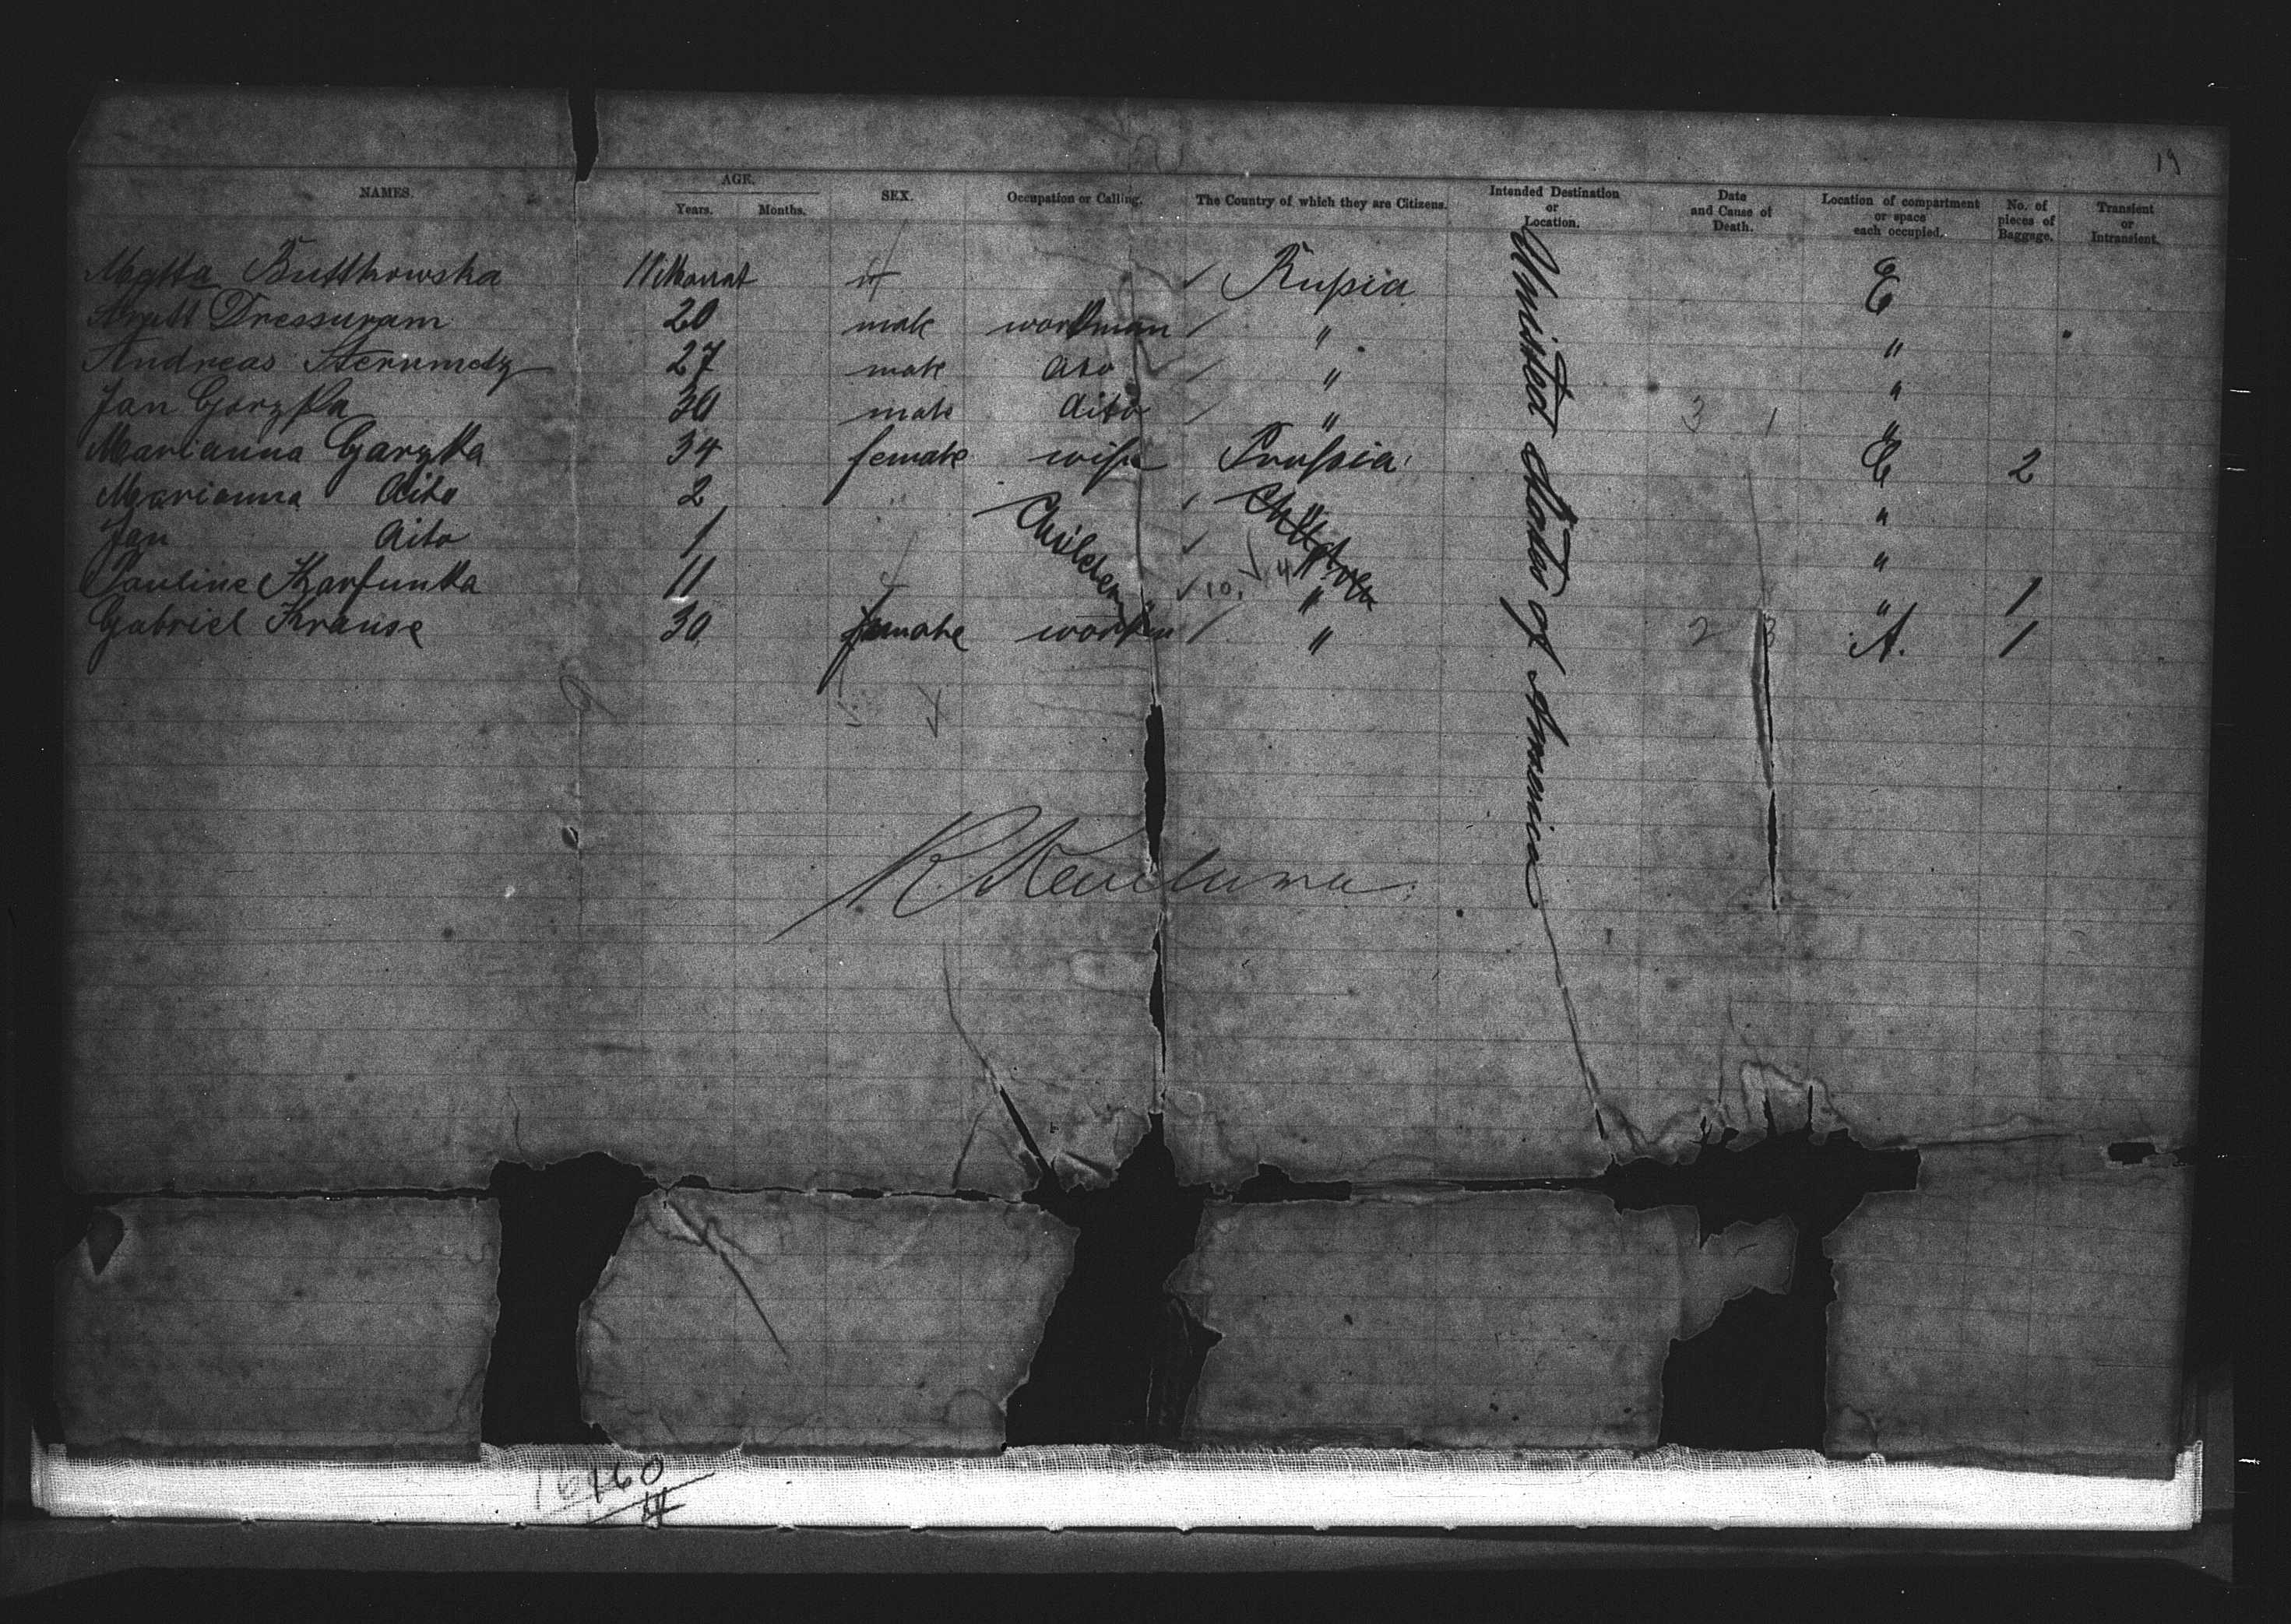 19
NAMES. AGE. SEX. Occupation or Calling. The Country of which they are Citizens. Intended Destination or Location. Date and Cause of Death. Location of compartment or space each occupied. No. of pieces of Baggage. Transient or Intransient.
Years. Months.
Buttkowska 11 Monat Rußia E
Dressuram 20 male workman " "
Andreas 27 male dito " "
Jan 30 male dito " 3 1 "
Marianna Garzka 34 female wife Prußia E 2
Marianna dito 2 "
Jan dito 1 "
Pauline Karfunka 11 10. 4 " " 1
Gabriel Krause 30 female " 2 3 A. 1
Children
Children
United States of America
160